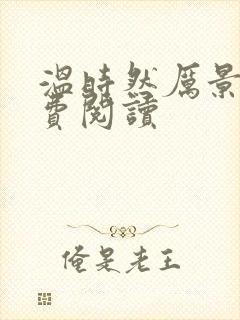 温時然厲景
費閱讀
俺是老王